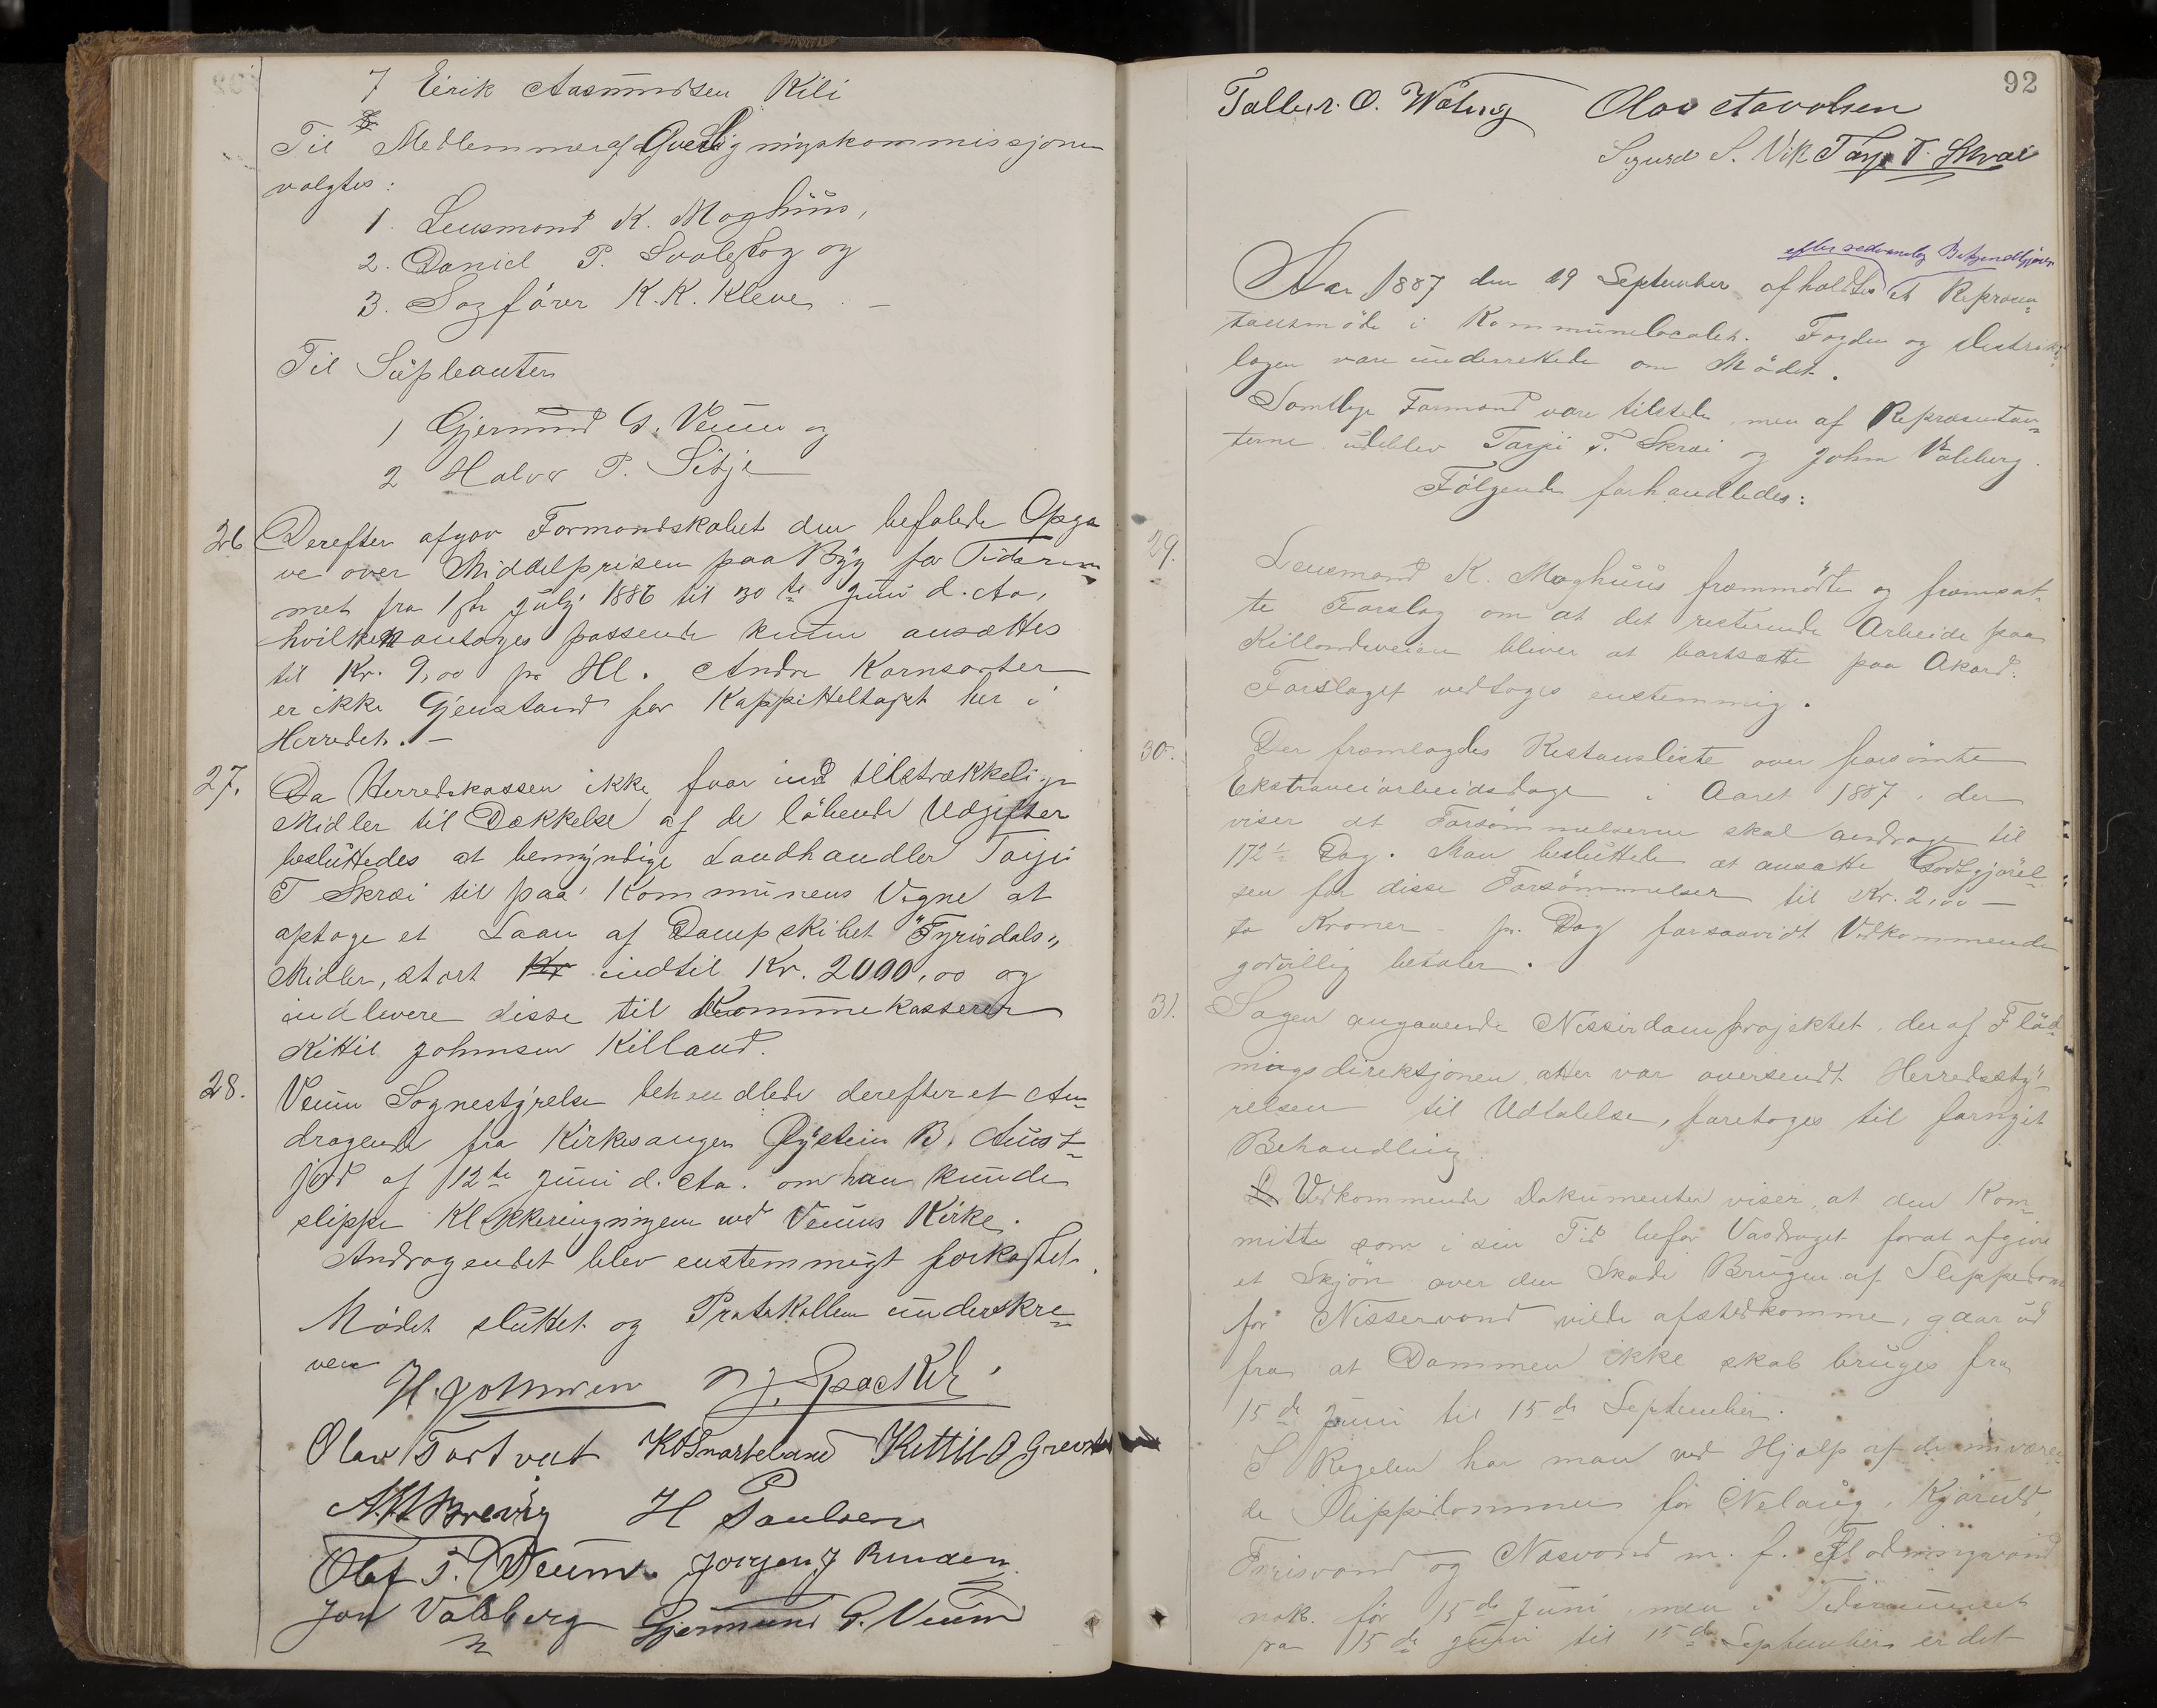 7 Eirik Aasmundsen Kili
Til Medlemmer af Overligningskommissjonen
valgtes:
1. Leusmond K. Moghüüs,
2. Daniel P. Svalestog og
3. Sagfører K. K. Kleve. —
Til Süpleanter
1 Gjermünd G. Veüm og
2 Halvor P. Sitje
26 Derefter afgav Formandskabet den befalede Opga
ve over Middelprisen paa Byg for Tidsrüm
met fra 1ste Jüli 1886 til 30te Jüni d. Aa,
hvilken antoges passende kunne ansættes
til Kr. 9,00 pr Hl. Andre Kornsorter
er ikke Gjenstand for Kappitteltaxt her i
Herredet. —
27. Da Herredskassen ikke faar ind tilstrækkelige
Midler til Dækkelse af de løbende Udgifter
beslüttedes at bemyndige Landhandler Tarjei
T Skræi til paa Kommünens Vegne at
optage et Laan af Dampskibet "Fyrisdals"
Midler, stort Kr indtil Kr. 2000,00 og
indlevere disse til Kommünekasserer
Kittil Johnsen Killand.
28. Veüm Sognestyrelse behandlede derefter et An-
dragende fra Kirkesanger Øystein B. Aüst-
jord af 12te Jüni d. Aa. om han künde
slippe Klokkeringningen ved Veüms Kirke.
Andragendet blev enstemmigt forkastet.
Mødet slüttet og Protokollen ünderskre-
ven
H. Johnsen N J. Spockeli
Olav Tortveit K O Snarteland Kittil O Grevstad
A. H. Brevig H Paulsen
Olaf T. Weum. Jorgen J Bunden
Jon Valeberg Gjermund G. Veum
92
Tallev. O. Waleng Olav Aavolsen
Sigurd S. Vik Tarje T. Skræi
efter sedvanlig Bekjendtgjørelse
Aar 1887 den 19 September afholdtes et Repræsen-
tantmøde i Kommünelocalet. Fogden og Distrikts-
lægen vare ünderrettede om Mødet.
Samtlige Formænd vare tilstede, men af Repræsentan-
terne üdeblev Tarjei T. Skræi og John Valeberg.
Følgende forhandledes:
29. Leusmond K. Moghüüs fremmødte og fremsat-
te Forslag om at det resterende Arbeide paa
Killandsveien bliver at bortsætte paa Akord.
Forslaget vedtoges enstemmig.
30. Der fremlagdes Restanseliste over forsømte
Ekstraveiarbeidsdage i Aaret 1887, der
viser at Forsømmelserne skal andrage til
172½ Dag. Man beslüttede at ansætte Godtgjørel-
sen for disse Forsømmelser til Kr. 2,00 —
to Kroner - pr. Dag forsaavidt Vedkommende
godvillig betaler.
31. Sagen angaaende Nisserdamprojektet, der af Flød-
ningsdirektjonen atter var oversendt Herredssty-
relsen til Udtalelse, foretoges til fornyet
Behandling.
Vedkommende Dokümenter viser, at den Kom-
mitte som i sin Tid befor Vasdraget forat afgive
et Skjøn over den Skade Brügen af Slippedam
for Nisservand vilde afstedkomme, gaar üd
fra at Dammen ikke skal brüges fra
15de Jüni til 15de September.
I Regelen har man ved Hjælp af de nüværen-
de Slippedammer for Nelaüg, Kjørüld,
Fyrisvand og Næsvand m. f. Flødningsvand
nok før 15de Jüni, men i Tidsrümmet
fra 15de Jüni til 15de September er det